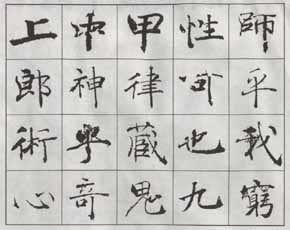 師乎我窮
性也九
甲律藏鬼
中神奇
上郎術心